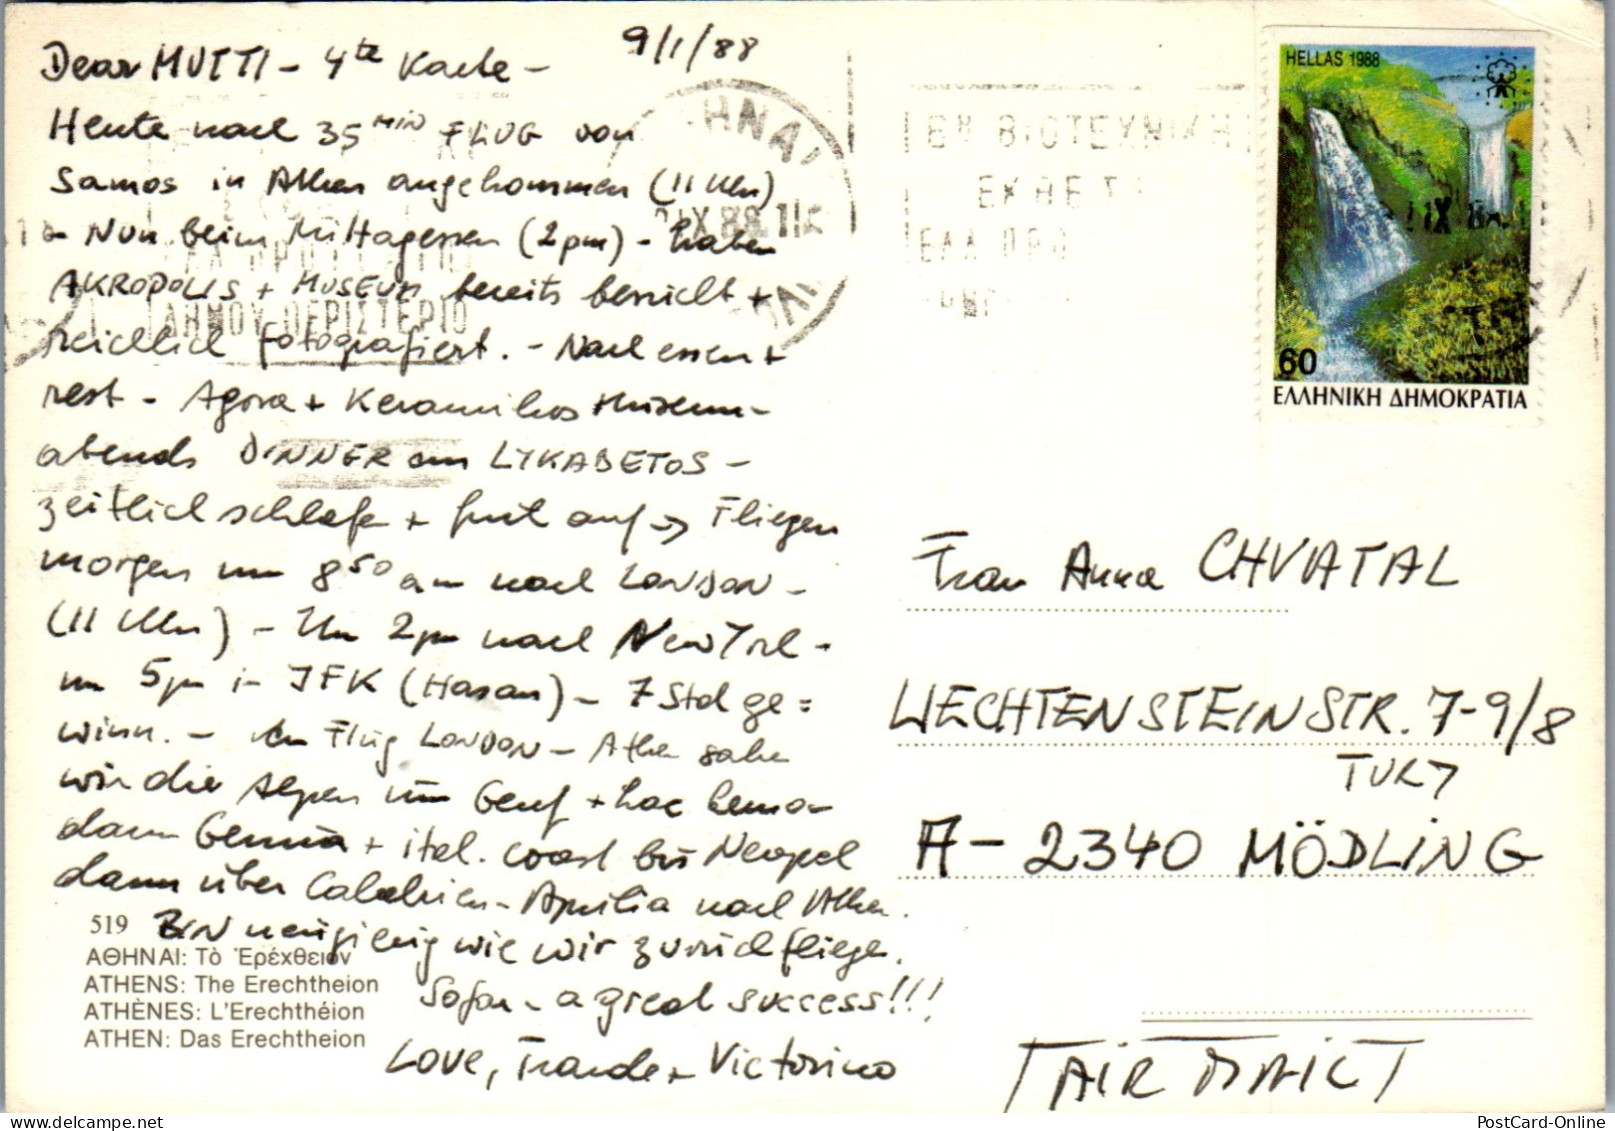 Dear MUTTI - 4te Karte - 9/1/88
Heute nach 35 MIN FLUG von
Samos in Athen angekommen (11 Uhr)
- Nun beim Mittagessen (2 pm) - haben
AKROPOLIS + MUSEUM bereits besucht +
reichlich fotografiert. - Nach essen +
rest - Agora + Keramikos Museum -
abends DINNER am LYKABETOS -
zeitlich schlafen + früh auf → Fliegen
morgen um 8 50 am nach LONDON -
(11 Uhr) - Um 2pm nach New York -
um 5pm in JFK (Hasan) - 7 Std ge=
winn. - Im Flug LONDON - Athen sahen
wir die Alpen um Genf + Lac Leman
dann Genua + ital. coast bis Neapel
dann über Calabrien - Apulia nach Athen.
BIN neugierig wie wir zurückfliegen.
Sofar - a great success!!!
Love, Traude + Victorino
519
ΑΘΗΝΑΙ: Τὸ Ἐρέχθειον
ATHENS: The Erechtheion
ATHÈNES: L'Erechthéion
ATHEN: Das Erechtheion
HELLAS 1988
60
ΕΛΛΗΝΙΚΗ ΔΗΜΟΚΡΑΤΙΑ
ΒΙΟΤΕΧΝΙΚΗ
ΔΗΜΟΥ ΠΕΡΙΣΤΕΡΙΟ
IX 88
Frau Anna CHVATAL
LIECHTENSTEINSTR. 7-9/8
TUR 7
A-2340 MÖDLING
AIR MAIL
PostCard-Online